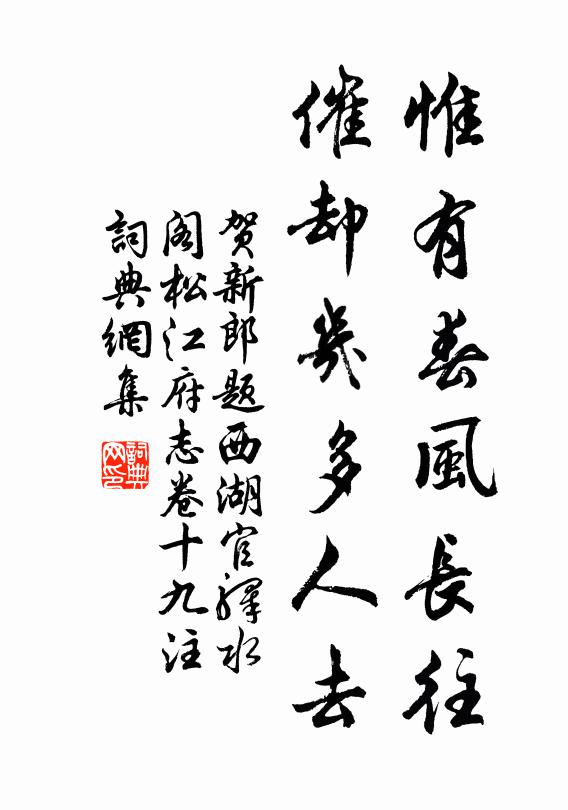 惟有春風長往
催却幾多人去
賀新郎題西湖官驛水
閣松江府志卷十九注
詞典網集
詞典
网印